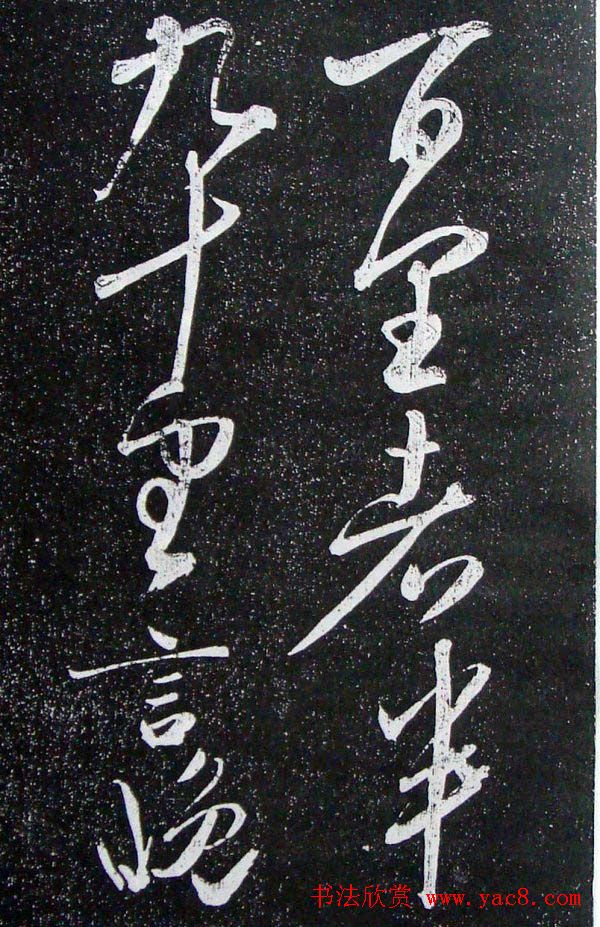 百里者半
九十里言晚
书法欣赏 www.yac8.com